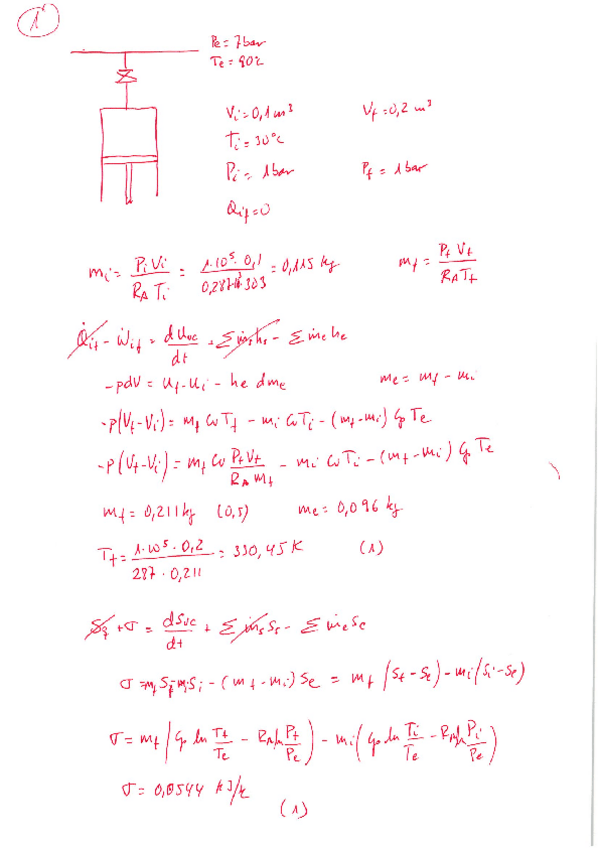 1
Pe = 7 bar
Te = 90°C
Vi = 0,1 m³ Vf = 0,2 m³
Ti = 30°C
Pi = 1 bar Pf = 1 bar
Qif = 0
mi = Pi Vi / RA Ti = 1·10⁵·0,1 / 0,287·10³·303 = 0,115 kg mf = Pf Vf / RA Tf
Q̇if - Ẇif = dUvc / dt + Σ ṁs hs - Σ ṁe he
-pdV = Uf - Ui - he dme me = mf - mi
-p(Vf-Vi) = mf Cv Tf - mi Cv Ti - (mf-mi) Cp Te
-p(Vf-Vi) = mf Cv Pf Vf / RA mf - mi Cv Ti - (mf-mi) Cp Te
mf = 0,211 kg (0,5) me = 0,096 kg
Tf = 1·10⁵·0,2 / 287·0,211 = 330,45 K (1)
+σ = dSvc / dt + Σ ṁs Ss - Σ ṁe Se
σ = mf Sf - mi Si - (mf-mi) Se = mf (Sf - Se) - mi (Si - Se)
σ = mf (Cp ln Tf / Te - RA ln Pf / Pe) - mi (Cp ln Ti / Te - RA ln Pi / Pe)
σ = 0,0544 kJ/k
(1)